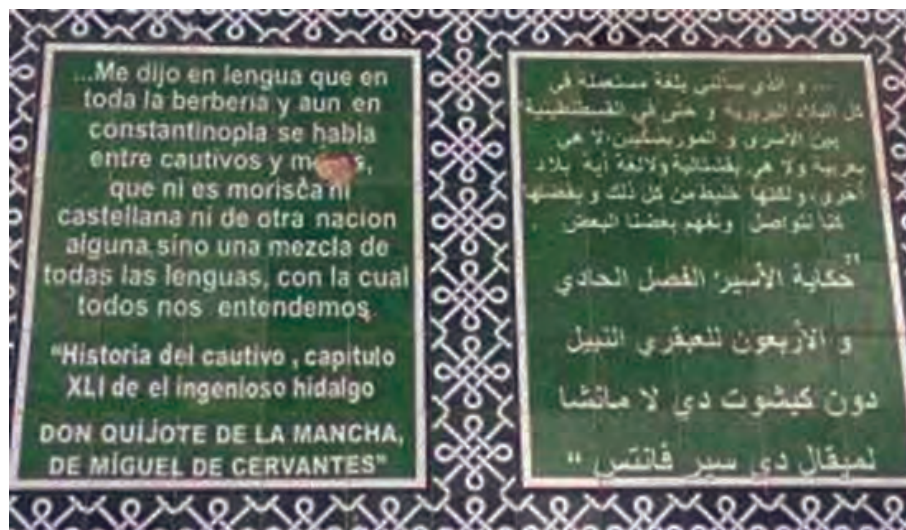 ...Me dijo en lengua que en
toda la berberia y aun en
constantinopla se habla
entre cautivos y
que ni es morisca ni
castellana ni de otra nacion
alguna sino una mezcla de
todas las lenguas, con la cual
todos nos entendemos.
"Historia del cautivo , capitulo
XLI de el ingenioso hidalgo
DON QUIJOTE DE LA MANCHA,
DE MIGUEL DE CERVANTES"
... و الذي سألني بلغة مستعملة في
كل البلاد البربرية و حتى في القسطنطينية
بين الأسرى و الموريسكيين، لا هي
بعربية ولا هي بقشتالية ولا لغة أية بلاد
أخرى، ولكنها خليط من كل ذلك و بفضلها
كنا نتواصل ونفهم بعضنا البعض .
"حكاية الأسير" الفصل الحادي
و الأربعون للعبقري النبيل
دون كيشوت دي لا مانشا
لميقال دي سير فانتس "